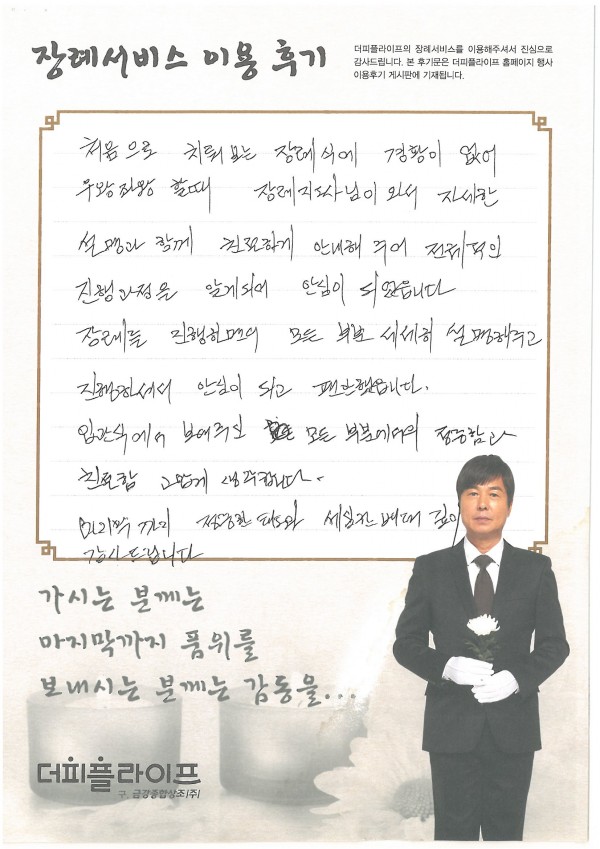 장례서비스 이용 후기
더피플라이프의 장례서비스를 이용해주셔서 진심으로
감사드립니다. 본 후기문은 더피플라이프 홈페이지 행사
이용후기 게시판에 기재됩니다.
처음으로 치뤄보는 장례식에 경황이 없어
우왕좌왕 할때 장례지도사님이 와서 자세한
설명과 함께 친절하게 안내해 주어 전체적인
진행과정을 알게되어 안심이 되었습니다
장례를 진행하면서 모든 부분 세세히 설명해주고
진행하셔서 안심이 되고 편안했습니다.
입관식에서 보여주신 모든 부분에서의 정중함과
친절함 고맙게 생각합니다.
마지막 까지 정중한 태도와 세심한 배려 깊이
감사드립니다
가시는 분께는
마지막까지 품위를
보내시는 분께는 감동을...
더피플라이프
구. 금강종합상조(주)